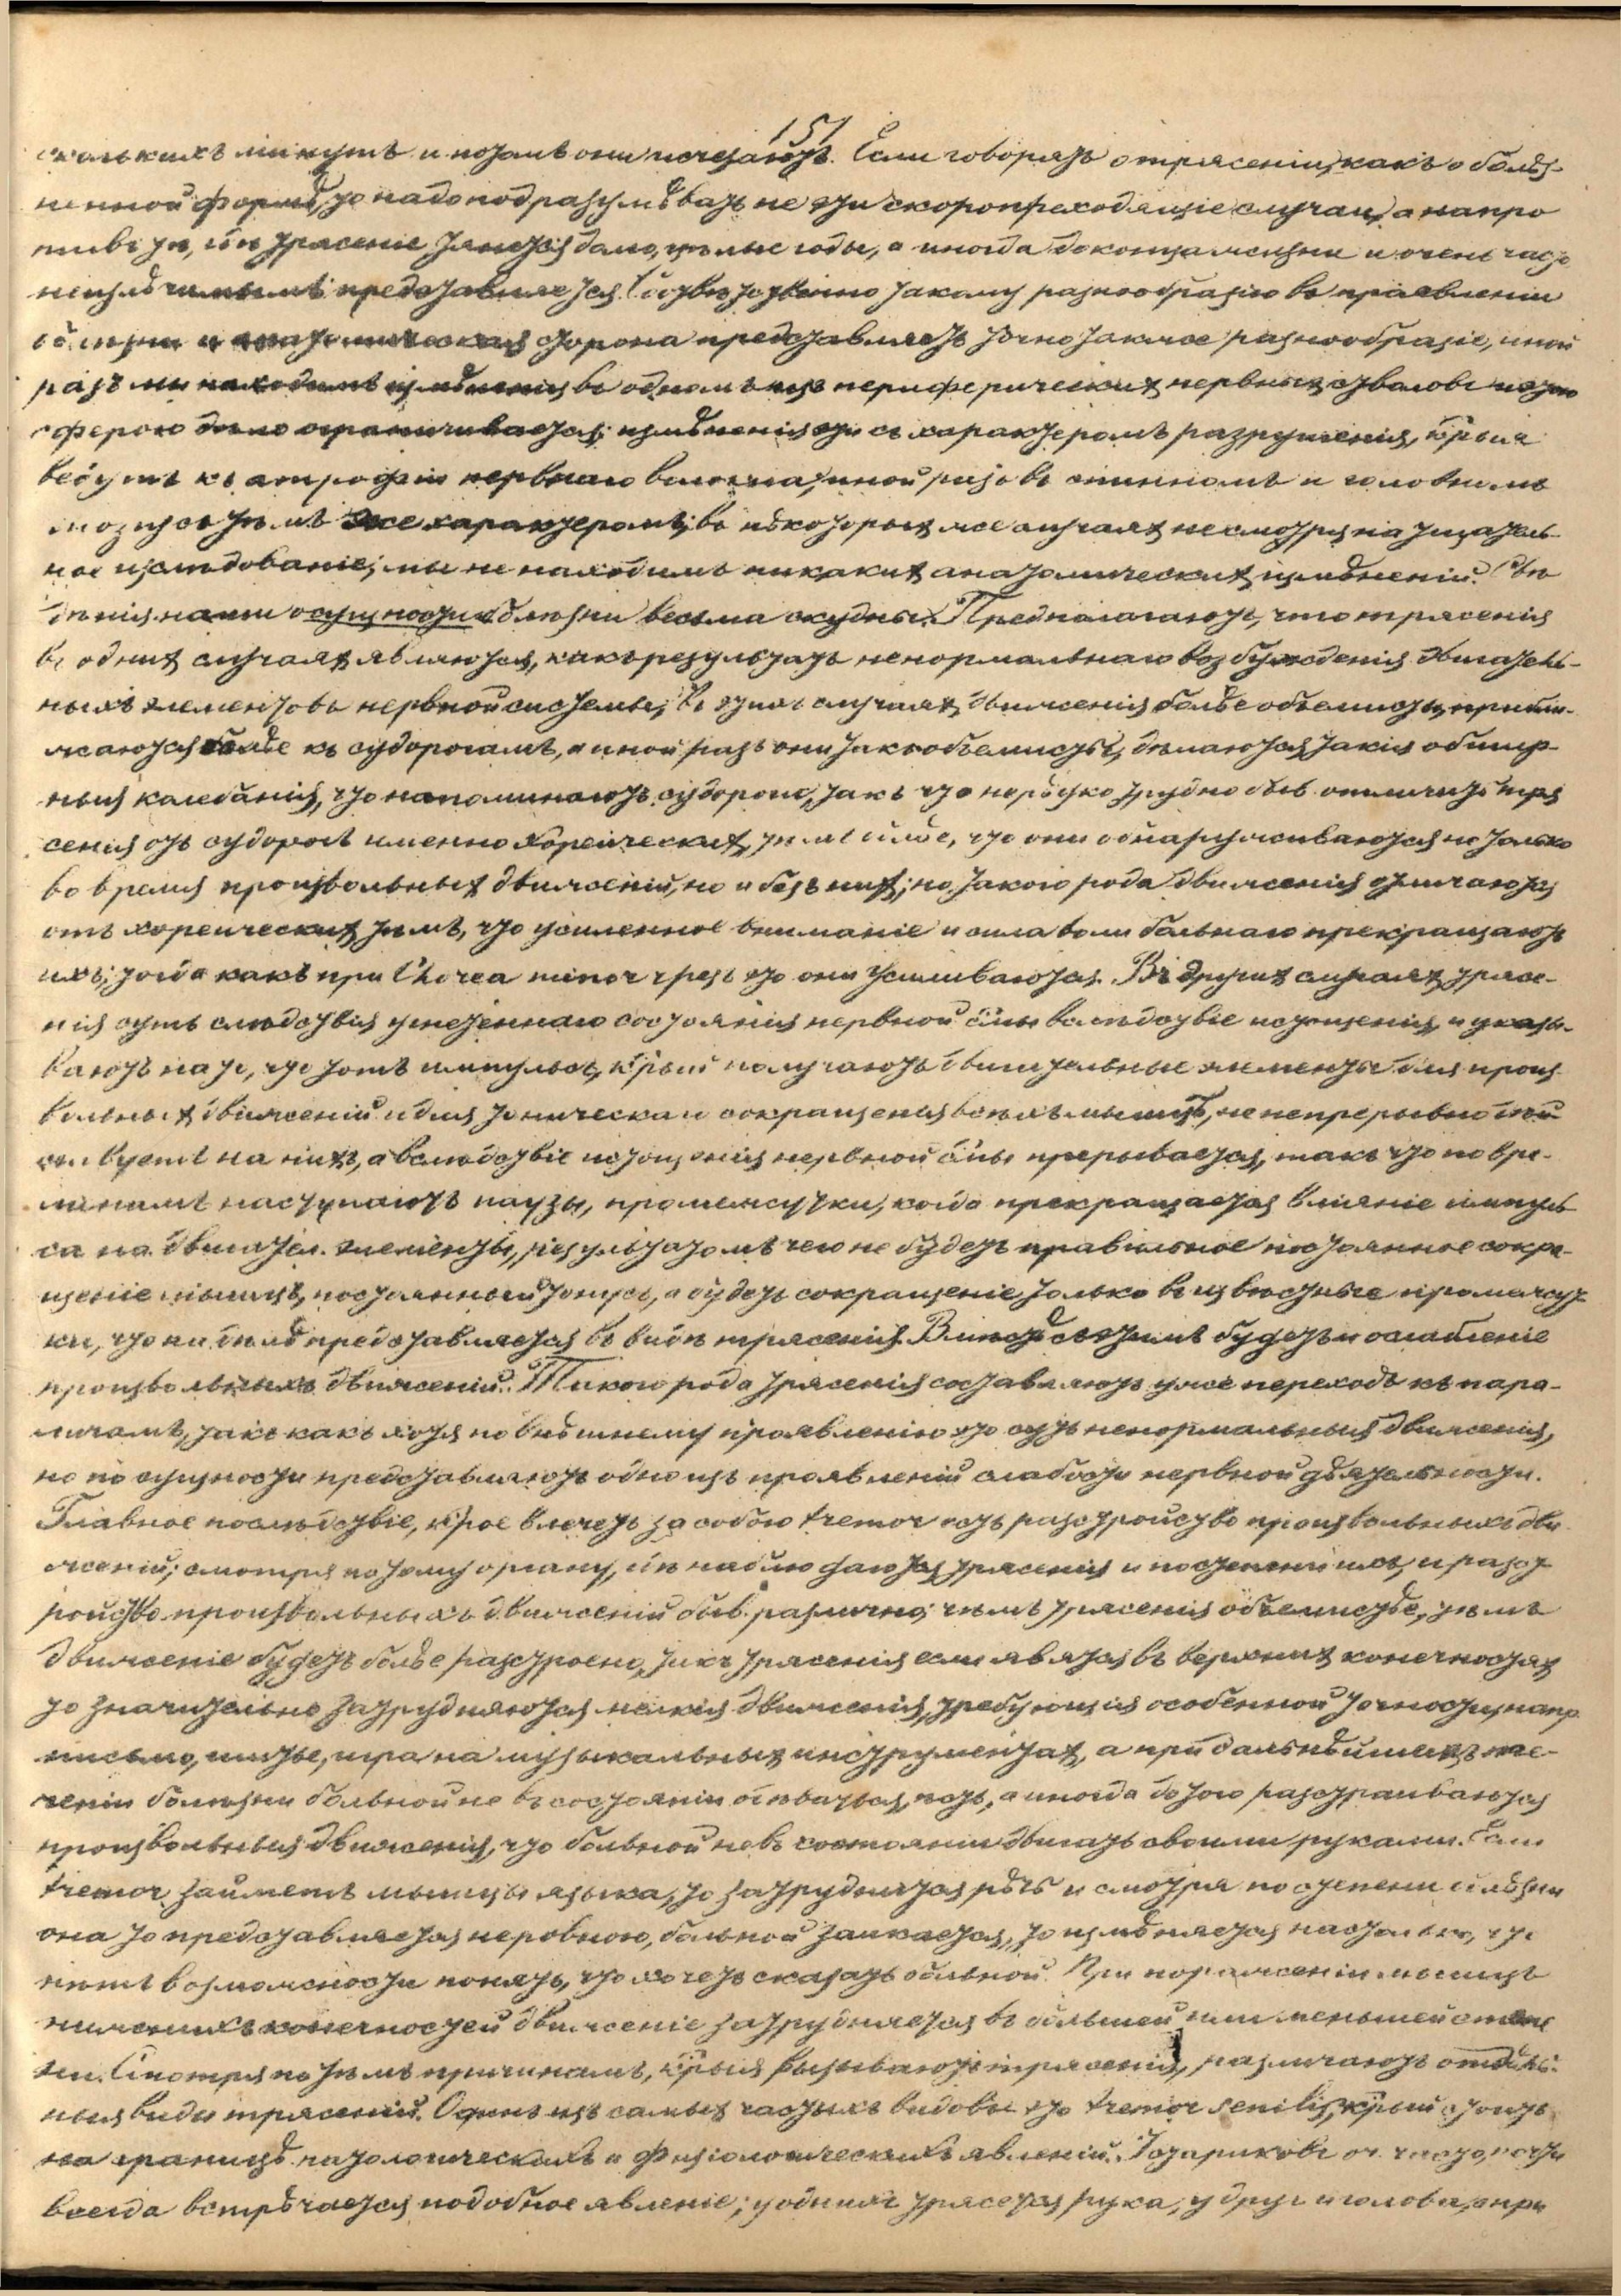 151
скольких минутъ и потомъ они исчезаютъ. Если говорятъ о трясеніи, какъ о болѣз-
ненной формѣ, то надо подразумѣвать не эти скоропреходящіе случаи, а напро
тивъ тѣ, гдѣ трясеніе тянется долго, цѣлые годы, а иногда до конца жизни и очень часто
неизлѣчимымъ представляется. Соотвѣтственно такому разнообразію въ проявленіи
и анатомическая сторона представляетъ точно такое разнообразіе, иной
разъ мы находимъ измѣненія въ одномъ изъ периферическихъ нервныхъ стволовъ и этою
сферою дѣло ограничивается; измѣненія эти съ характеромъ разрушенія, к̃рыя
ведутъ къ атрофіи нервнаго волокна, иной разъ въ спинномъ и головномъ
мозгу съ тѣмъ же характеромъ; въ нѣкоторыхъ же случаяхъ несмотря на тщатель-
ное изслѣдованіе, мы не находимъ никакихъ анатомическихъ измѣненій. Свѣ
дѣнія наши о сущности болѣзни весьма скудны. Предполагаютъ, что трясенія
въ однихъ случаяхъ являются, какъ результатъ ненормальнаго возбужденія двигатель-
ныхъ элементовъ нервной системы; въ этихъ случаяхъ движенія болѣе объемисты, прибли-
жаются болѣе къ судорогамъ, а иной разъ они такъ объемисты, дѣлаются такія обшир-
ныя колебанія, что напоминаютъ судорогу, такъ что нерѣдко трудно быв. отличить тря
сенія отъ судорогъ именно хореическихъ, тѣмъ болѣе, что они обнаруживаются не только
во время произвольныхъ движеній, но и безъ нихъ; но такого рода движенія отличаются
отъ хореическихъ тѣмъ, что усиленное вниманіе и сила воли больнаго прекращаютъ
ихъ; тогда какъ при Chorea minor чрезъ это они усиливаются. Въ другихъ случаяхъ трясе-
нія суть слѣдствія угнетеннаго состоянія нервной с̃мы вслѣдствіе истощенія, и указы-
ваютъ на то, что тотъ импульсъ, к̃рый получаютъ двигательные элементы для произ
вольныхъ движеній и для тоническаго сокращенія всѣхъ мышцъ, не непрерывно дѣй
ствуетъ на нихъ, а вслѣдствіе истощенія нервной с̃мы прерывается, такъ что по вре-
менамъ наступаютъ паузы, промежутки, когда прекращается вліяніе импуль
са на двигател. элементы, результатомъ чего не будетъ правильное постоянное сокра-
щеніе мышцъ, постоянный тонусъ, а будетъ сокращеніе только въ извѣстные промежут
ки, что на дѣлѣ представляется въ видѣ трясенія. Вмѣстѣ съ этимъ будетъ и ослабленіе
произвольныхъ движеній. Такого рода трясенія составляютъ уже переходъ къ пара-
личамъ, такъ какъ хотя по внѣшнему проявленію это суть ненормальныя движенія,
но по сущности представляютъ одно изъ проявленій слабости нервной дѣятельности.
Главное послѣдствіе, к̃рое влечетъ за собою tremor есть разстройство произвольныхъ дви
женій; смотря по тому органу, гдѣ наблюдаются трясенія и по степени ихъ, и разст
ройство произвольныхъ движеній быв. различно; чѣмъ трясенія объемистѣе, тѣмъ
движеніе будетъ болѣе разстроено, такъ трясенія если явятся въ верхнихъ конечностяхъ
то значительно затрудняются мелкія движенія, требующія особенной точности, напр.
письмо, шитье, игра на музыкальныхъ инструментахъ, а при дальнѣйшемъ те-
ченіи болѣзни больной не въ состояніи одѣваться, ѣсть, а иногда до того разстраиваются
произвольныя движенія, что больной не въ состояніи двигать своими руками. Если
tremor займетъ мышцы языка, то затруднится рѣчь и смотря по степени болѣзни
она то представляется неровною, больной заикается, то измѣняется настолько, что
нѣтъ возможности понять, что хочетъ сказать больной. При пораженіи мышцъ
нижнихъ конечностей движеніе затрудняется въ большей или меньшей степе
ни. Смотря по тѣмъ причинамъ, к̃рыя вызываютъ трясенія, различаютъ отдѣль-
ныя виды трясеній. Одинъ изъ самыхъ частыхъ видовъ это tremor senilis, к̃рый стоитъ
на границѣ патологическихъ и физіологическихъ явленій. У стариковъ оч. часто, почти
всегда встрѣчается подобное явленіе; у однихъ трясется рука, у друг. и голова, при